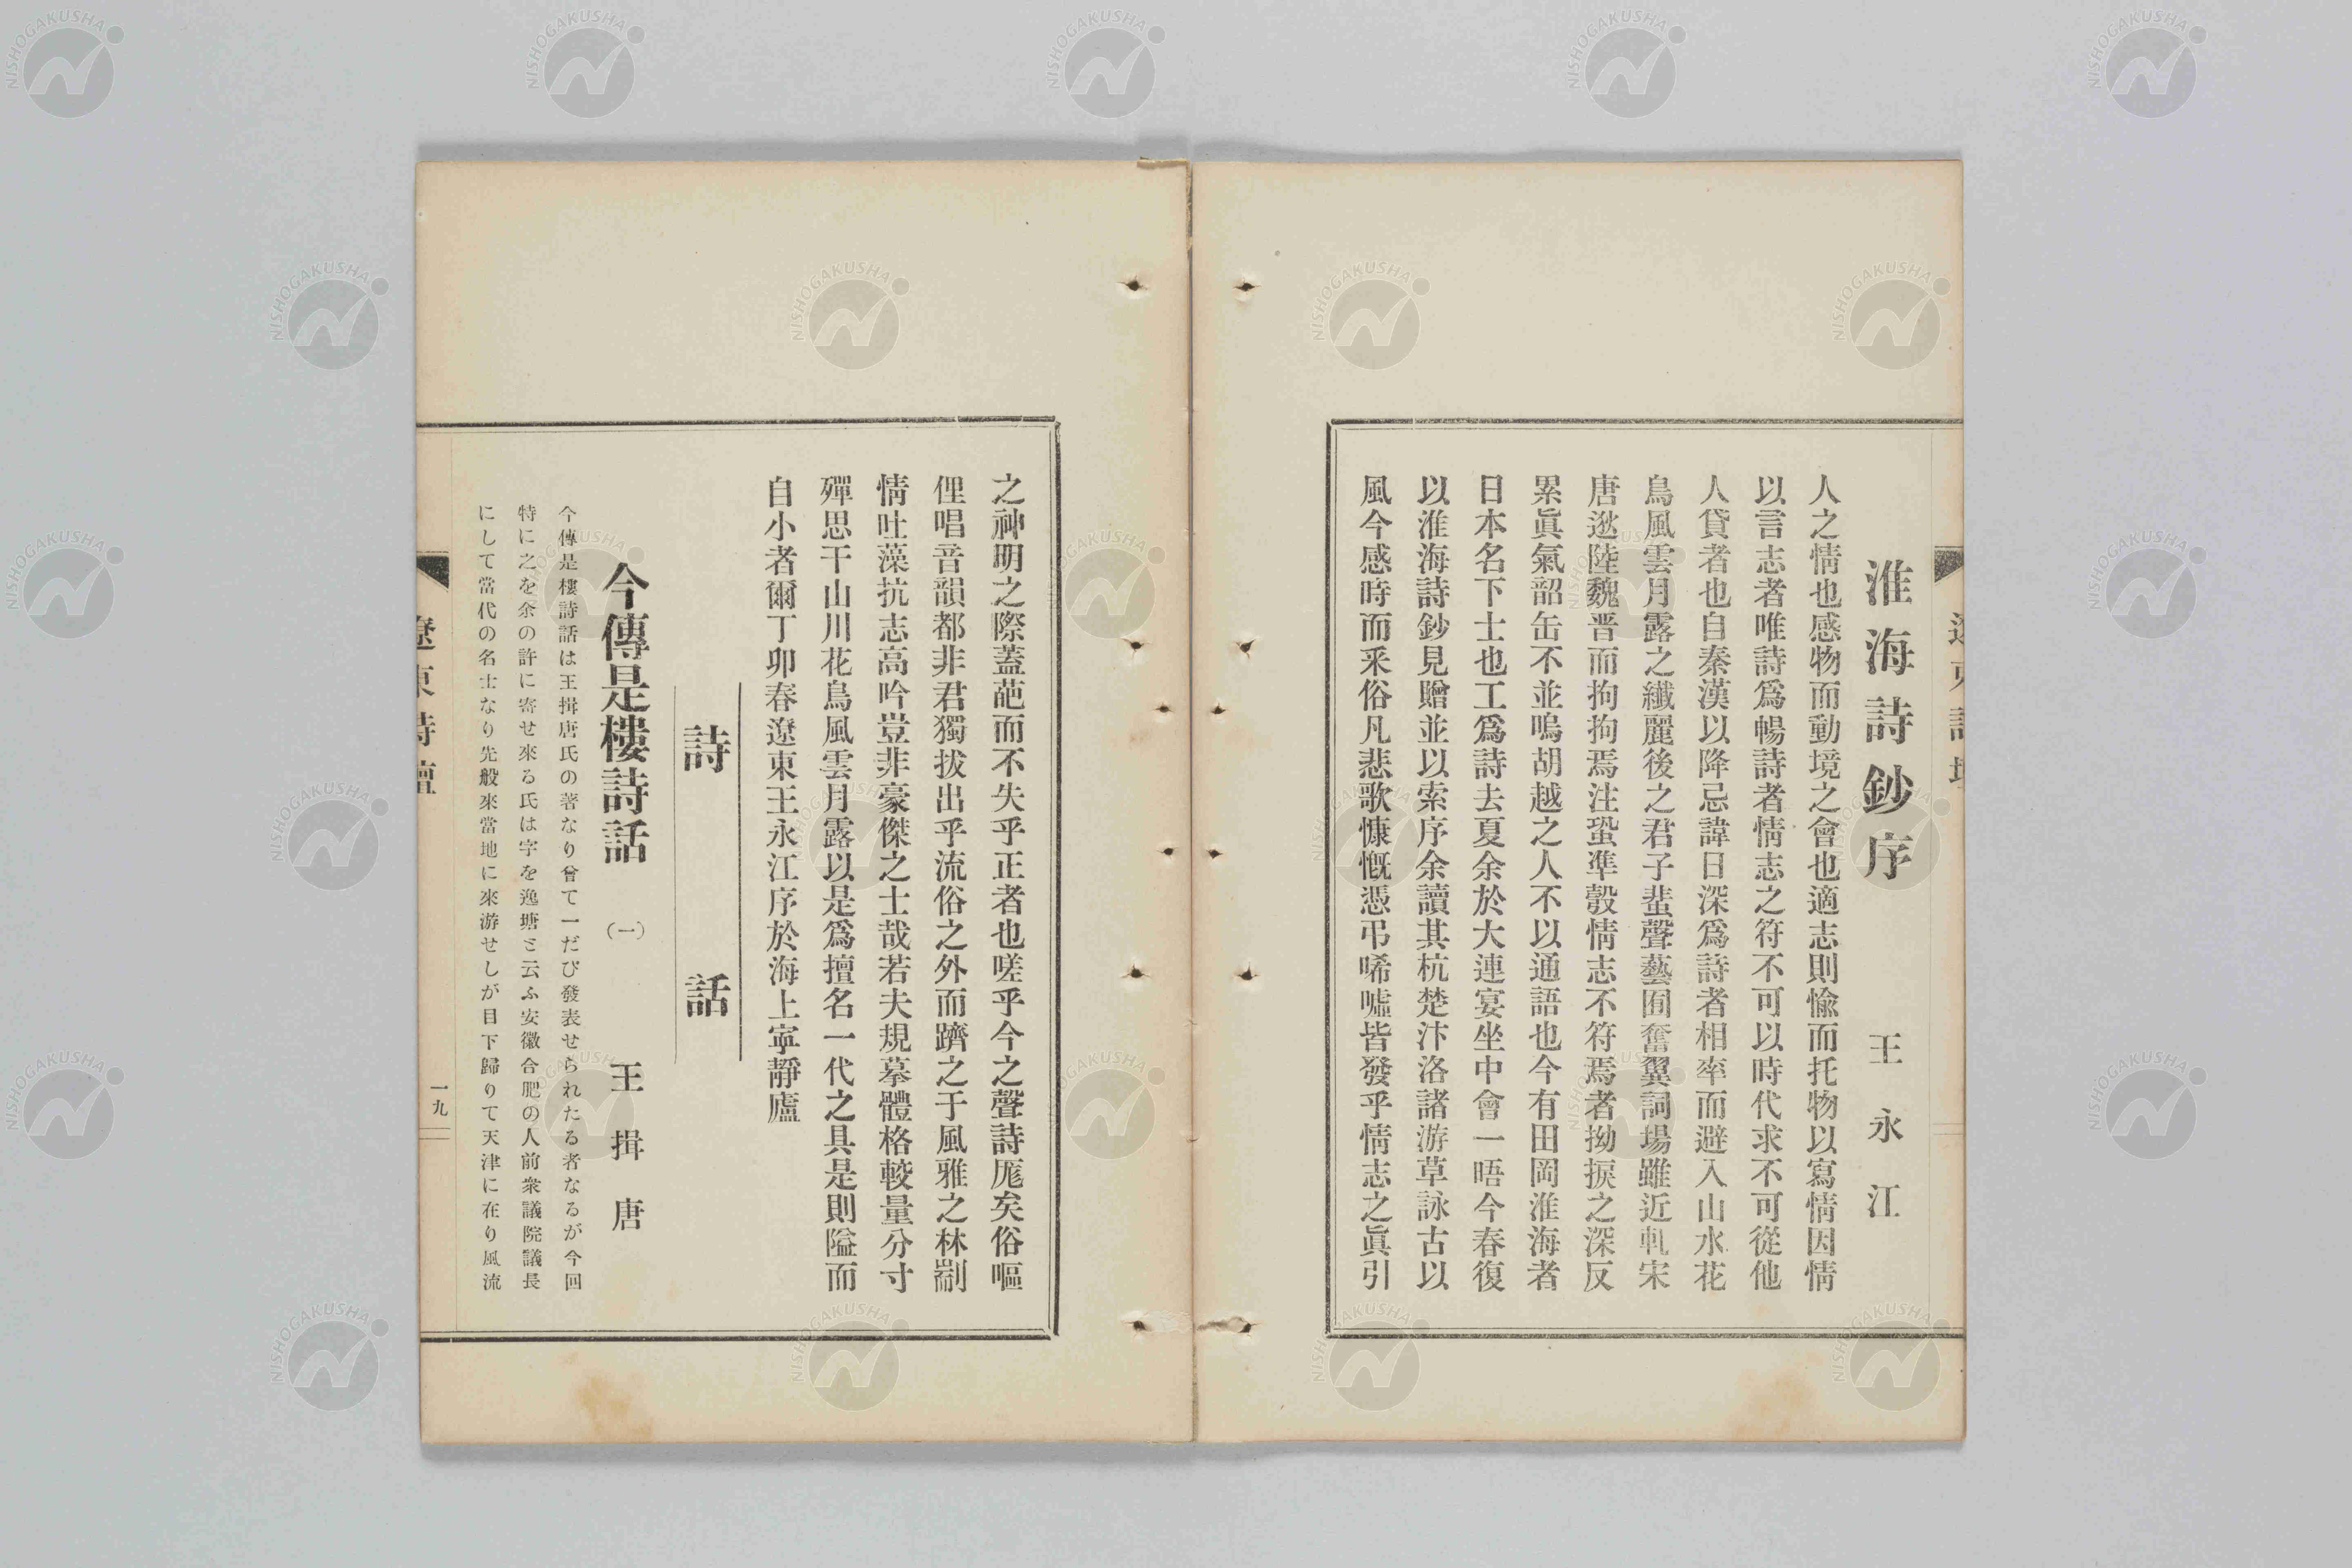 淮海詩鈔序　王永江
人之情也感物而動境之會也適志則愉而托物以寫情因情
以言志者唯詩爲暢詩者情志之符不可以時代求不可從他
人貸者也自秦漢以降忌諱日深爲詩者相率而避入山水花
鳥風雲月露之纖麗後之君子蜚聲藝囿奮翼詞場雖近軋宋
唐邀陸魏晋而拘拘焉注蛩準彀情志不符焉者拗捩之深反
累眞氣韶缶不並鳴胡越之人不以通語也今有田岡淮海者
日本名下士也工爲詩去夏余於大連宴坐中會一晤今春復
以淮海詩鈔見贈並以索序余讀其杭楚汴洛諸游草詠古以
風今感時而釆俗凡悲歌慷慨憑弔唏噓皆發乎情志之眞引
之神明之際蓋葩而不失乎正者也嗟乎今之聲詩厖矣俗嘔
俚唱音韻都非君獨拔出乎流俗之外而躋之于風雅之林劘
情吐藻抗志高吟豈非豪傑之士哉若夫規摹體格較量分寸
殫思干山川花鳥風雲月露以是爲擅名一代之具是則隘而
自小者爾丁卯春遼東王永江序於海上寧靜廬
詩話
今傳是樓詩話（一）　王揖唐
今傳是樓詩話は王揖唐氏の著なり曾て一だび發表せられたる者なるが今回
特に之を余の許に寄せ來る氏は字を逸塘と云ふ安徽合肥の人前衆議院議長
にして當代の名士なり先般來當地に來游せしが目下歸りて天津に在り風流
遼東詩壇
一九
NISHOGAKUSHA